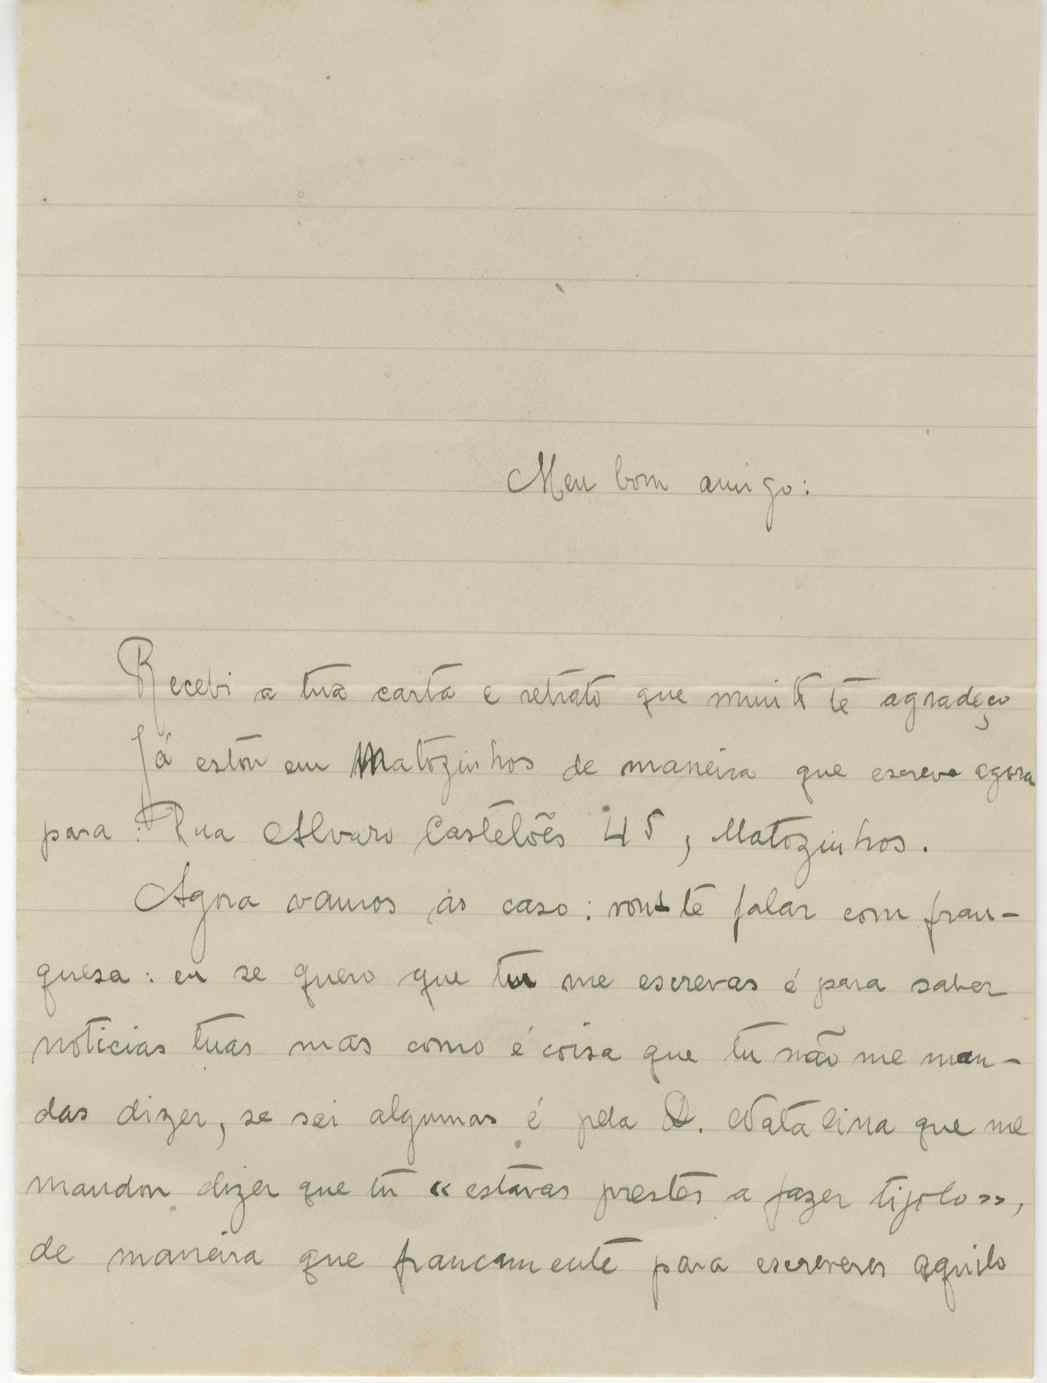 Meu bom amigo:
Recebi a tua carta e retrato que muito te agradeço
Já estou em Matozinhos de maneira que escreve agora
para: Rua Alvaro Castelões 45, Matozinhos.
Agora vamos ás caso: vou-te falar com fran-
quesa: eu se quero que tu me escrevas é para saber
noticias tuas mas como é coisa que tu não me man-
das dizer, se sei algumas é pela D. Natalina que me
mandou dizer que tu «estavas prestes a fazer tijolo»,
de maneira que francamente para escreveres aquilo